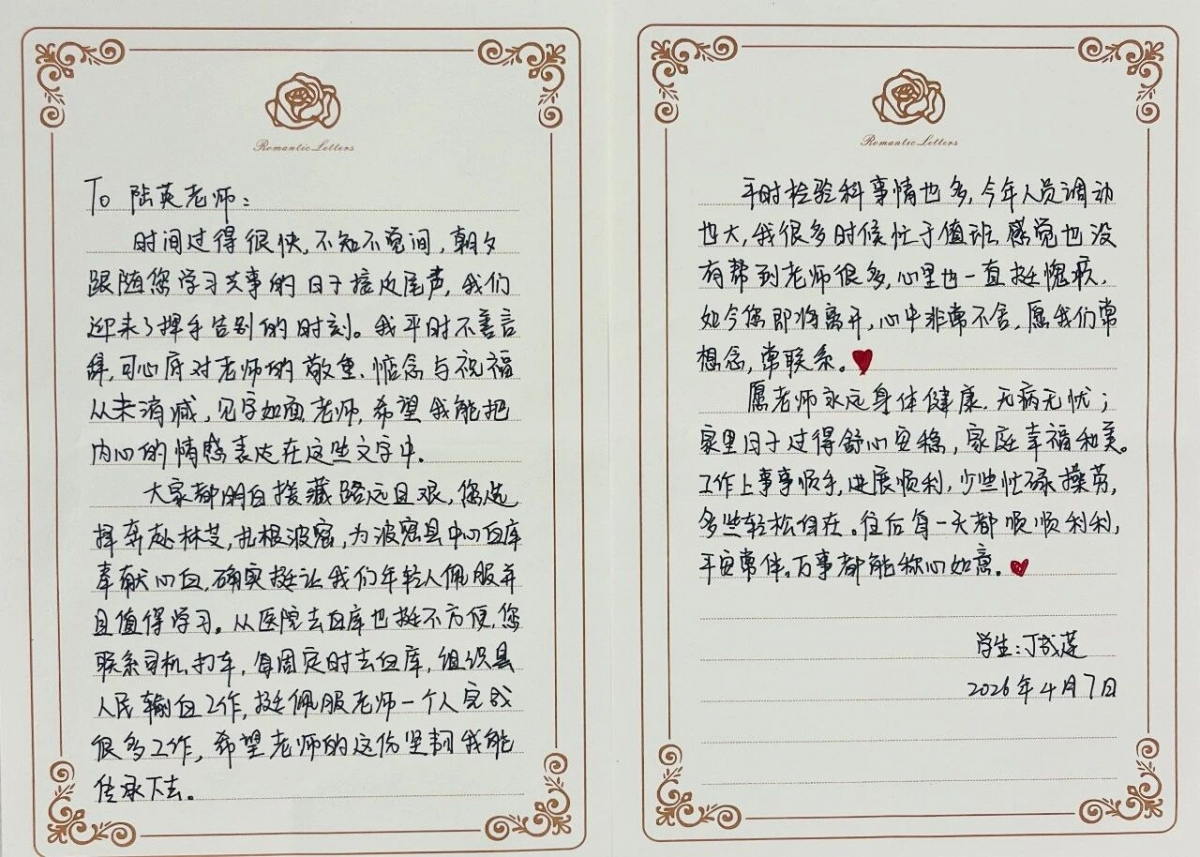 Romantic Letters
To 陆英老师:
时间过得很快,不知不觉间,朝夕
跟随您学习共事的日子接近尾声,我们
迎来了挥手告别的时刻。我平时不善言
辞,可心底对老师的敬重、惦念与祝福
从未消减,见字如面,老师,希望我能把
内心的情感表达在这些文字中。
大家都明白援藏路远且艰,您选
择奔赴林芝,扎根波密,为波密县中心血库
奉献心血,确实挺让我们年轻人佩服并
且值得学习。从医院去血库也挺不方便,您
联系司机、打车,每周定时去血库,组织县
人民输血工作,挺佩服老师一个人完成
很多工作,希望老师的这份坚韧我能
传承下去。
Romantic Letters
平时检验科事情也多,今年人员调动
也大,我很多时候忙于值班,感觉也没
有帮到老师很多,心里也一直挺愧疚,
如今您即将离开,心中非常不舍,愿我们常
想念,常联系。
愿老师永远身体健康,无病无忧;
家里日子过得舒心安稳,家庭幸福和美。
工作上事事顺手,进展顺利,少些忙碌操劳,
多些轻松自在。往后每一天都顺顺利利,
平安常伴,万事都能称心如意。
学生:丁成莲
2026年4月7日